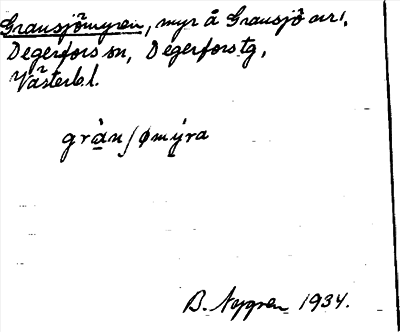 Gransjömyren, myr å Gransjö ar!,
Degerfors sn, Degerfors tg,
Västerb. l.
grànʃømýra
B. Nygren 1934.